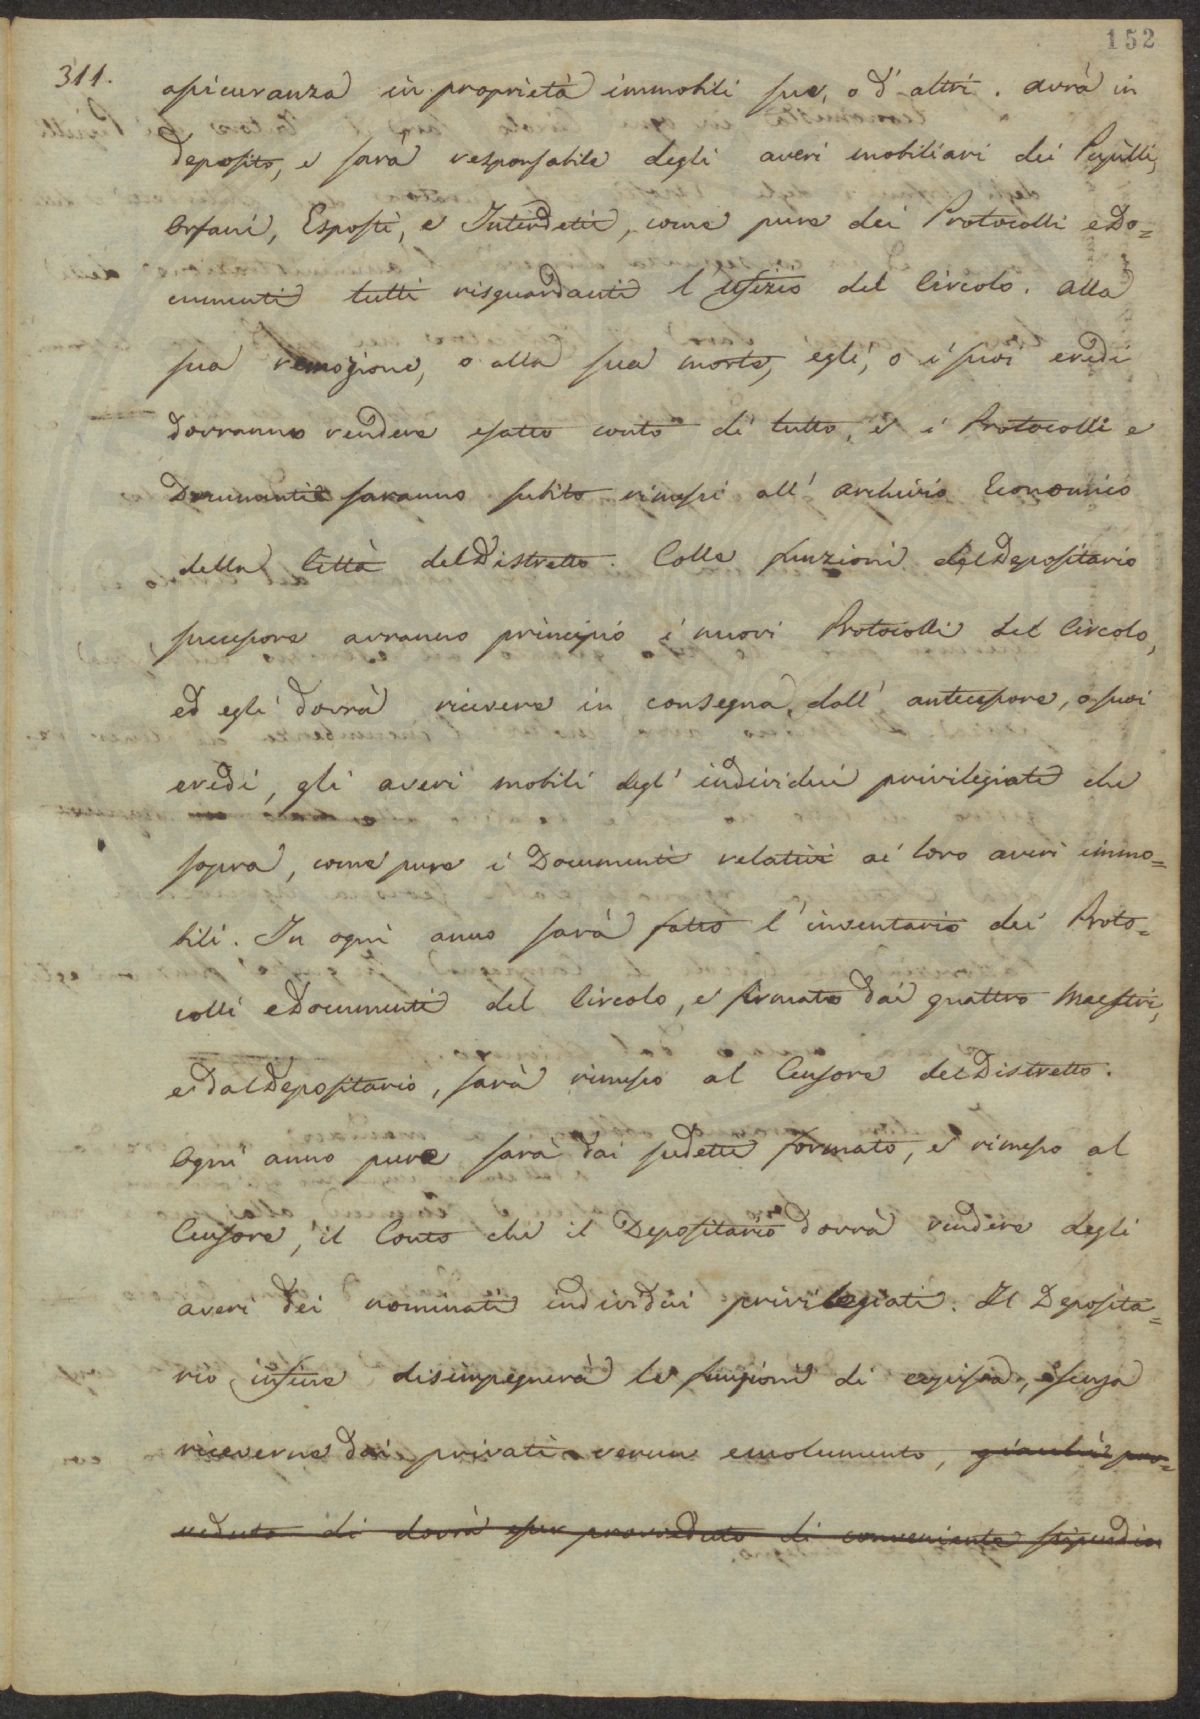 152
311.
assicuranza in proprietà immobili sue, o d'altri. avrà in
deposito, e sarà responsabile degli averi mobiliari dei Pupilli,
Orfani, Esposti, e Interdetti, come pure dei Protocolli e Do=
cumenti tutti risguardanti l'Ufizio del Circolo. alla
sua remozione, o alla sua morte, egli, o i suoi eredi
dovranno rendere esatto conto di tutto, e i Protocolli e
Documenti saranno subito rimessi all'archivio Economico
della Città del Distretto. Colle funzioni del Depositario
successore avranno principio i nuovi Protocolli del Circolo,
ed egli dovrà ricevere in consegna, dall'antecessore, o suoi
eredi, gli averi mobili degl'individui privilegiati che
sopra, come pure i Documenti relativi ai loro averi immo=
bili. In ogni anno sarà fatto l'inventario dei Proto=
colli e Documenti del Circolo, e firmato dai quattro Maestri,
e dal Depositario, sarà rimesso al Censore del Distretto.
Ogni anno pure sarà dai sudetti formato, e rimesso al
Censore, il Conto che il Depositario dovrà rendere degli
averi dei nominati individui privilegiati. Il Deposita=
rio infine disimpegnerà le funzioni di , senza
riceverne dai privati verun emolumento, 
di dovrà esser provveduto di conveniente stipendio